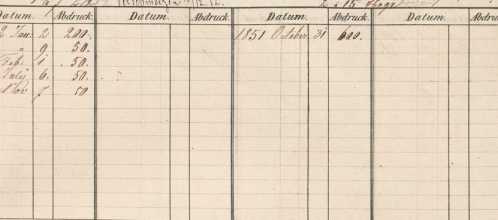 Datum. Abdruck. Datum. Abdruck. Datum. Abdruck. Datum. Abdruck.
Jan. 2 200. 1851 October 31 600.
" 9 50.
Feb. 1 50.
July 6. 50.
Nov 7 50